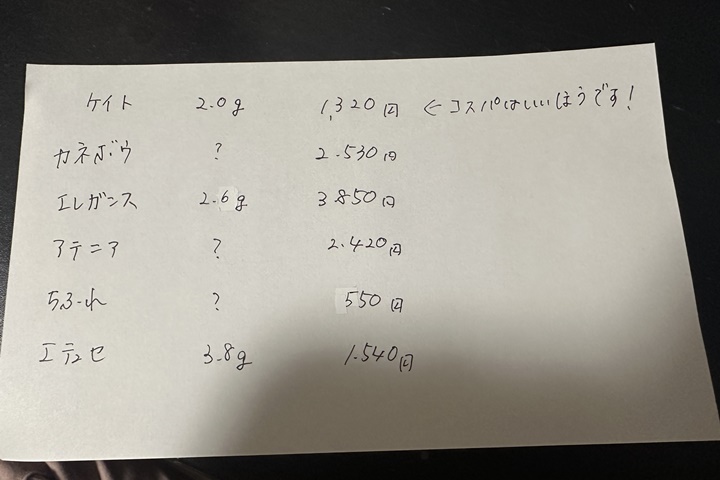 ケイト 2.0g 1,320円 ←コスパはいいほうです!
カネボウ ? 2.530円
エレガンス 2.6g 3850円
アテニア ? 2.420円
ちふーれ ? 550円
エテュセ 3.8g 1.540円